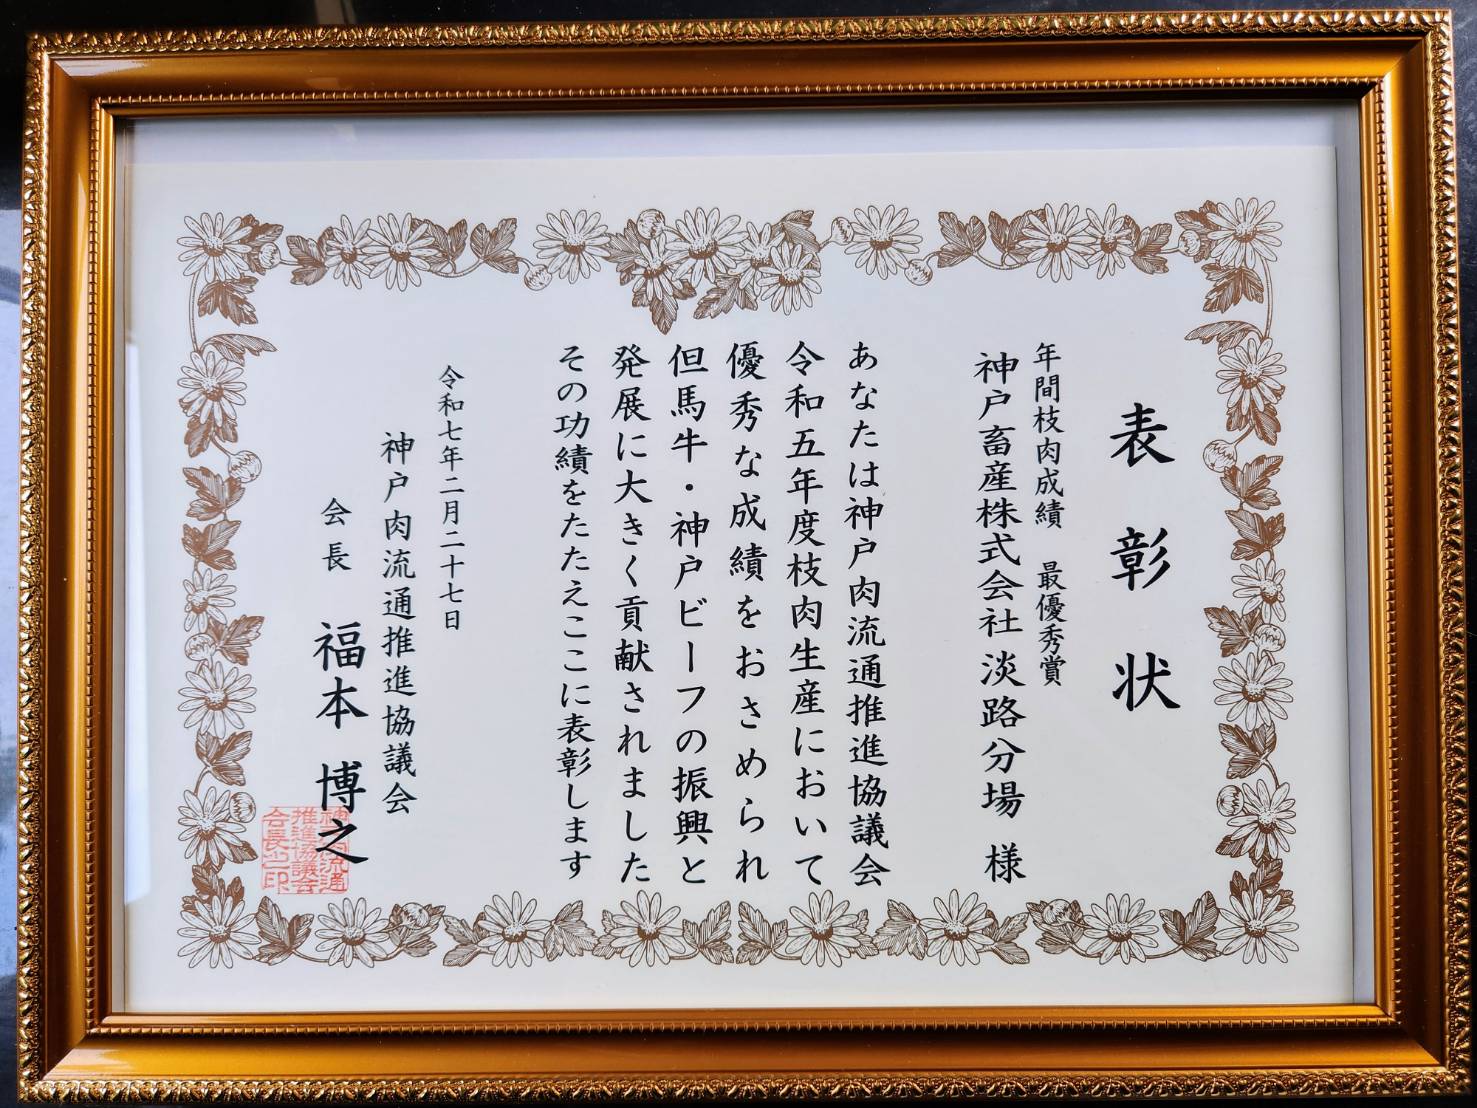 表彰状
年間枝肉成績 最優秀賞
神戸畜産株式会社淡路分場 様
あなたは神戸肉流通推進協議会
令和五年度枝肉生産において
優秀な成績をおさめられ
但馬牛・神戸ビーフの振興と
発展に大きく貢献されました
その功績をたたえここに表彰します
令和七年二月二十七日
神戸肉流通推進協議会
会長 福本 博之
神戸肉流通
推進協議会
会長之印